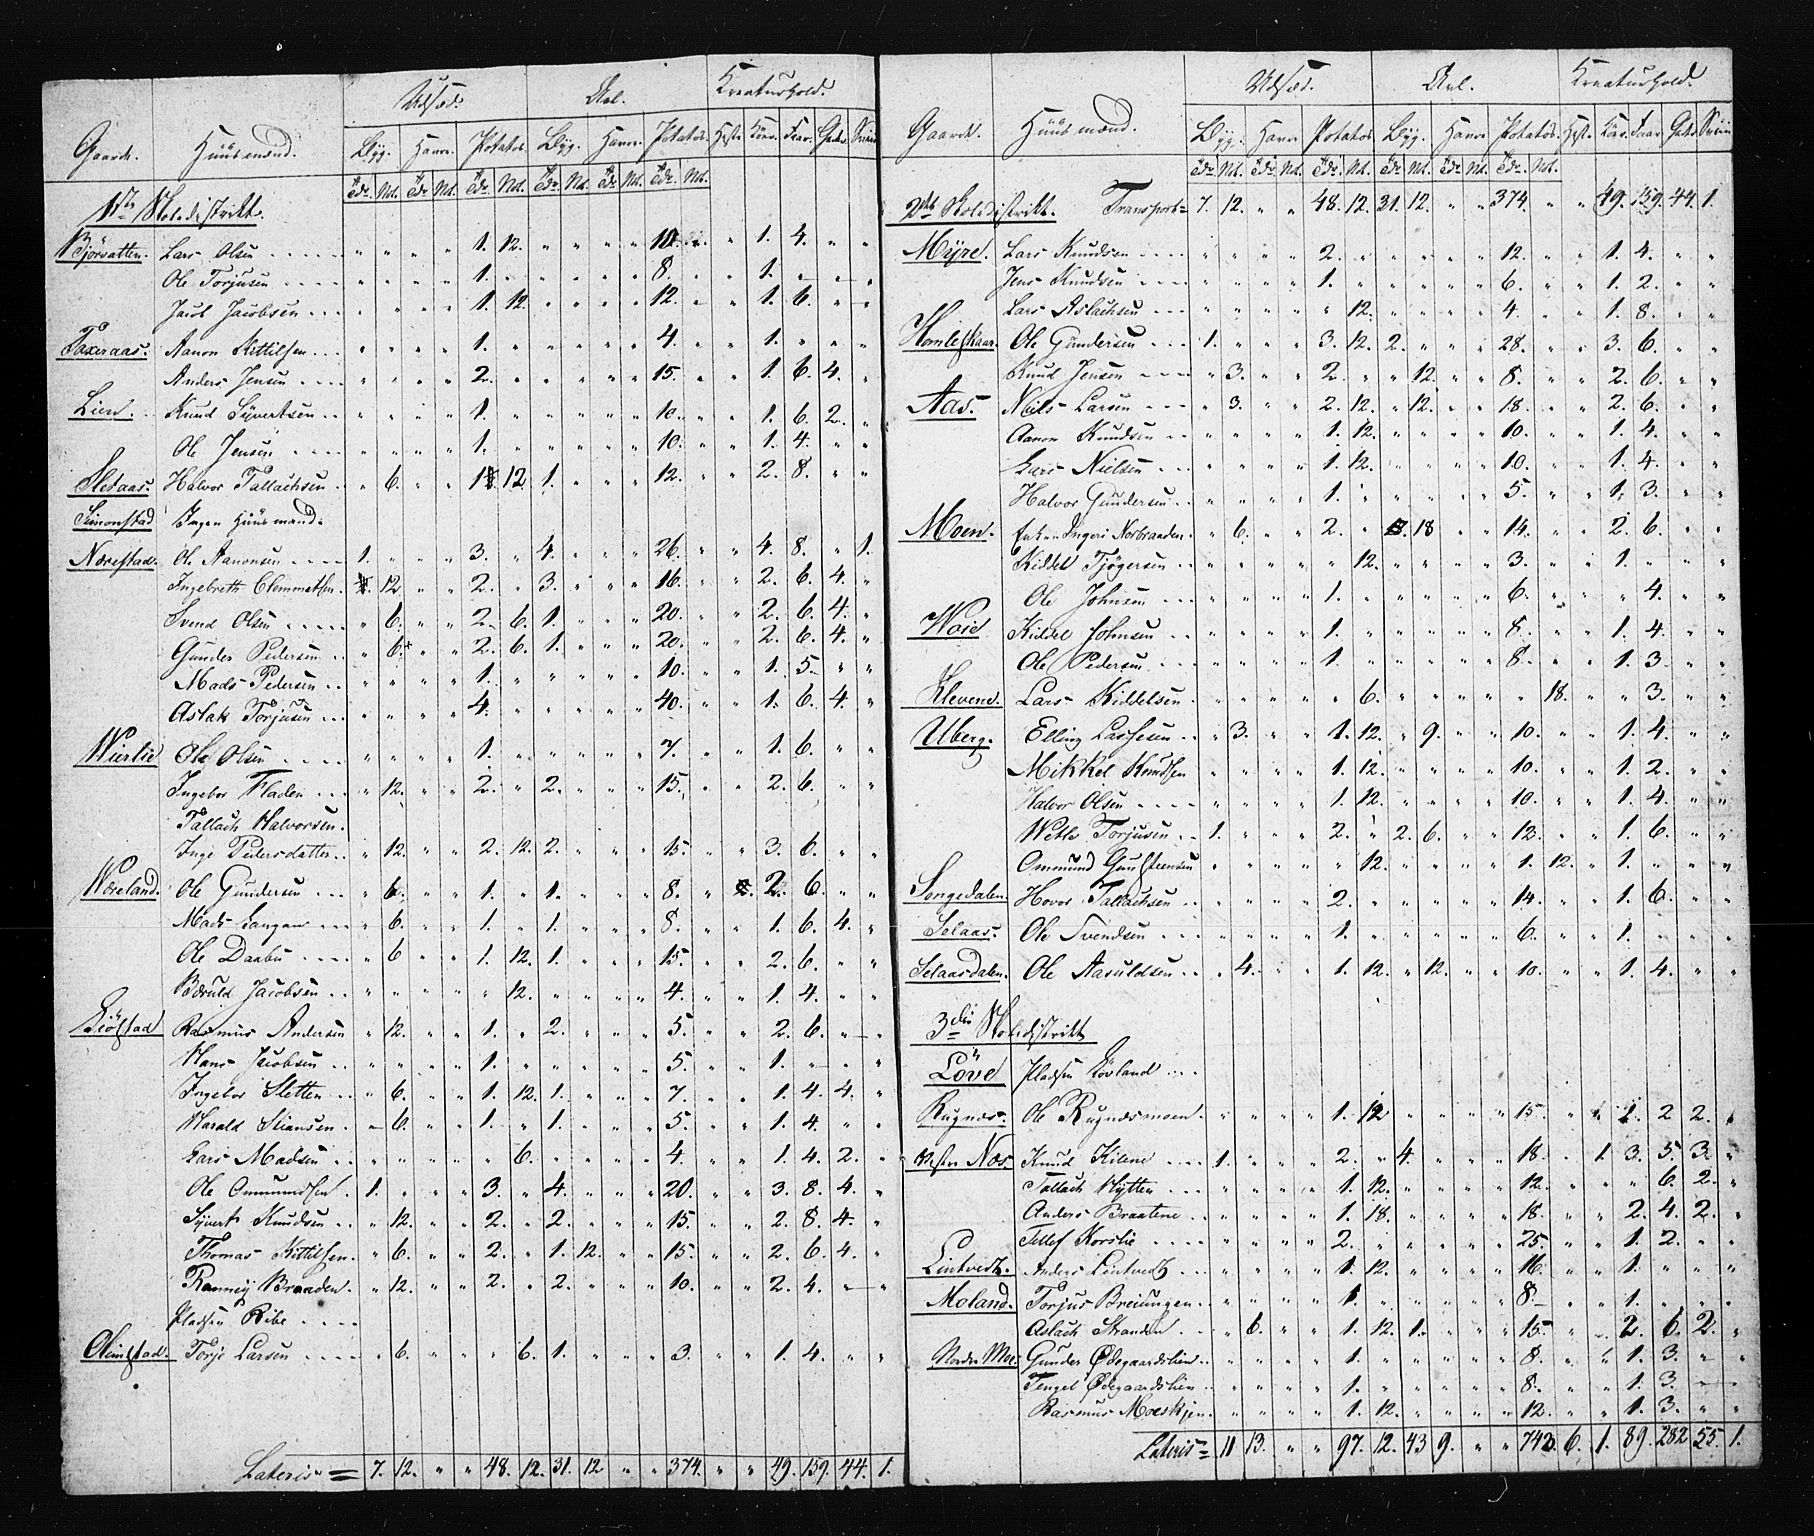 Udsæd. Avl. Kreaturhold.
Gaarde. Huusmænd. Byg. Havre. Potates. Byg. Havre. Potates. Heste. Kiør. Faar. Geder. Sviin
Tdr. Nd. Tdr. Nd. Tdr. Nd. Tdr. Nd. Tdr. Nd. Tdr. Nd.
1ste Skoledistrikt.
Bjørvatten. Lars Olsen " " " " 1. 12. " " " " 10. " " 1. 4. " "
Ole Torjusen " " " " 1. " " " " " 8. " " 1. " " "
Jacob Jacobsen " " " " 1. 12. " " " " 12. " " 1. 6. " "
Toxeraas. Aanon Kittilsen " " " " 1. " " " " " 4. " " 1. " " "
Anders Jensen " " " " 2. " " " " " 15. " " 1. 6. 4. "
Lien. Knud Syvertsen " " " " 1. " " " " " 10. " " 1. 6. 2. "
Ole Jensen " " " " 1. " " " " " 10. " " 1. 4. " "
Sletaas. Halvor Tallachsen " 6. " " 1 12 1. " " " 12. " " 2. 8. " "
Simonstad Ingen Huusmænd.
Nærestad. Ole Aanonsen 1. " " " 3. " 4. " " " 26. " " 4. 8. " 1.
Ingebreth Clemmetsen. " 12. " " 2. " 3. " " " 16. " " 2. 6. 4. "
Svend Olsen " 6. " " 2. 6. 1. " " " 20. " " 2. 6. 4. "
Gunder Pedersen " 6. " " 2. 6. 1. " " " 20. " " 2. 6. 4. "
Mads Pedersen " " " " 1. " " " " " 10. " " 1. 5. " "
Aslak Torjusen " " " " 4. " " " " " 40. " " 1. 6. 4. "
Wierlie Ole Olsen " " " " 1. " " " " " 7. " " 1. 6. " "
Ingebor Fladen " 12. " " 2. " 2. " " " 15. " " 2. 6. " "
Tallach Halvorsen.
Inge Pedersdatter " 12. " " 2. 12. 2. " " " 15. " " 3. 6. " "
Wæreland. Ole Gundersen " 6. " " 1. " 1. " " " 8. " 2. 6. " "
Mads Gangan " 6. " " 1. " 1. " " " 8. " " 1. 6. 4. "
Ole Daabu " 6 " " 1. 12. 1. " " " 15. " " 2. 6. " "
Bæruld Jacobsen " " " " " 12. " " " " 4. " " 1. 4. " "
Giøstad Rasmus Andersen " 12. " " 1. " 2. " " " 5. " " 2. 6. " "
Hans Jacobsen " " " " 1. " " " " " 5. " " 1. " " "
Ingebor Sletten " 6. " " 1. 12. 1. " " " 7. " " 1. 4. 4. "
Harald Stiansen " 6. " " 1. " 1. " " " 5. " " 1. 4. " "
Lars Madsen " " " " " 6. " " " " 4. " " 1. 4. 2. "
Ole Ommundsen 1. " " " 3. " 4. " " " 20. " " 3. 8. 4. "
Syvert Knudsen " 12. " " 2. " 2. " " " 15. " " 2. 8. 4. "
Thomas Kittilsen " 6. " " 2. " 1. 12. " " 15. " " 2. 6. 4. "
Ranney Braaden " 12. " " 2. " 2. " " " 10. " " 2. 4. " "
Pladsen Ribe
Olimstad. Torje Larsen " 6. " " " 6. 1. " " " 3. " " 1. 4. " "
Lateris = 7. 12. " " 48. 12. 31. 12 " " 374. " " 49. 159. 44. 1.
Udsæd. Avl. Kreaturhold.
Gaarde. Huusmænd. Byg. Havre Potates Byg. Havre Potates. Heste Kiør. Faar. Geder Sviin
Tdr. Nd. Tdr. Nd. Tdr. Nd. Tdr. Nd. Tdr. Nd. Tdr. Nd.
2det Skoledistrikt. Transport = 7. 12. " " 48. 12. 31. 12. " " 374. " " 49. 159. 44. 1.
Myre. Lars Knudsen " " " " 2. " " " " " 12. " " 1. 4. " "
Jens Knudsen " " " " 1. " " " " " 6. " " 1. 2. " "
Lars Aslachsen " " " " " 12. " " " " 4. " " 1. 8. " "
Homleskaar. Ole Gundersen 1. " " " 3. 12. 2. " " " 28. " " 3. 6. " "
Knud Jensen " 3. " " 2. " " 12. " " 8. " " 2. 6. " "
Aas. Niels Larsen " 3. " " 2. 12. " 12. " " 18. " " 2. 6. " "
Aanon Knudsen " " " " 1. 12. " " " " 10. " " 1. 4. " "
Lars Nielsen " " " " 1. 12. " " " " 10. " " 1. 4. " "
Halvor Gundersen " " " " 1. " " " " " 5. " " 1. 3. " "
Moen. Enken Ingeri Norbraaden. " 6. " " 2. " 18 " " 14. " " 2. 6. " "
Kiddel Tjøgersen " " " " " 12. " " " " 3. " " 1. " " "
Ole Johnsen " " " " 1. " " " " " 6. " " " 4. " "
Waie Kiddel Johnsen " " " " 1. " " " " " 8. " " 1. 4. " "
Ole Pedersen " " " " 1. " " " " " 8. " " 1. 3. " "
Klevene. Lars Kiddelsen " " " " " 6. " " " " " 18. " " 3. " "
Uberg. Elling Lassesen " 3. " " 1. 12. " 9. " " 10. " " 1. 4. " "
Mikkel Knudsen " " " " 1. 12. " " " " 10. " " 1. 2. " "
Halvor Olsen " " " " 1. 12. " " " " 10. " " 1. 4. " "
Wetle Torjusen 1. " " " 2. " 2. 6. " " 12. " " 1. 6. " "
Ommund Gunsteensen " " " " " 12. " " " " 1. 12. " 1. " " "
Songedalen. Hovor Tallachsen " " " " 2. " " " " " 14. " " 1. 6. " "
Selaas. Ole Svendsen " " " " 1. " " " " " 6. " " 1. " " "
Selaasdalen. Ole Aasuldsen " 4. " " 1. 12. " 12. " " 10. " " 1. 4. " "
3die Skoledistrikt
Löve Pladsen Lövland
Rugnæs. Ole Rugnæsmoen " " " " 1. 12 " " " " 15. " " 1. 2. 2. "
Vestre Næs Knud Kilene 1. " " " 2. " 4. " " " 18. " 1. 3. 5. 3. "
Tallach Hytten " " " " 1. 12. " " " " 12. " " " 6. 2. "
Anders Braatene " " " " 1. 18. " " " " 18. " " 2. 4. 2. "
Tellef Korslie " " " " 2. " " " " " 25. " " 1. 2. " "
Lintvedt. Anders Lintvedt " " " " 1. 12. " " " " 16. " " 1. " " "
Moland. Torjus Breiungen " " " " 1. " " " " " 8. " " 1. " " "
Aslach Stranden " 6. " " 1. 12. 1. " " " 15. " " 2. 6. 2. "
Nordre Moe. Gunder Ødegaardslien " " " " 1. " " " " " 8. " " 1. 3. " "
Tengel Ødegaardslien " " " " 1. " " " " " 8. " " 1. 3. " "
Rasmus Moeskjen " " " " 1. 12. " " " " 12. " " 1. 3. " "
Lateris = 11 13. " " 97. 12. 43 9. " " 742. 6. 1. 89. 282 55. 1.